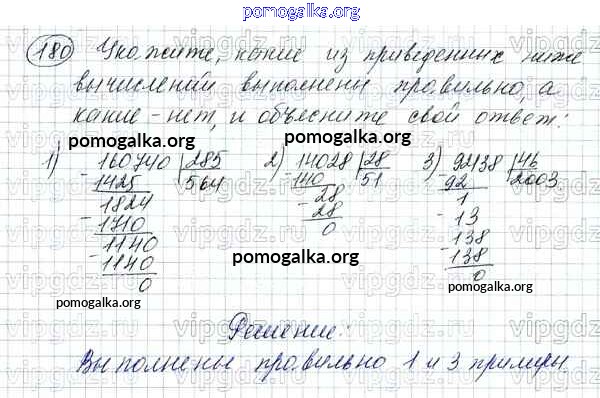 pomogalka.org
180 Укажите, какие из приведенных ниже
вычислений выполнены правильно, а
какие - нет, и объясните свой ответ:
pomogalka.org pomogalka.org
1) 160740 285 2) 14028 28 3) 92138 46
- 1425 564 - 140 51 - 92 2003
1824 - 28 1
- 1710 28 - 13
1140 0 138
- 1140 - 138
0 0
pomogalka.org pomogalka.org pomogalka.org
Решение:
Выполнены правильно 1 и 3 примеры